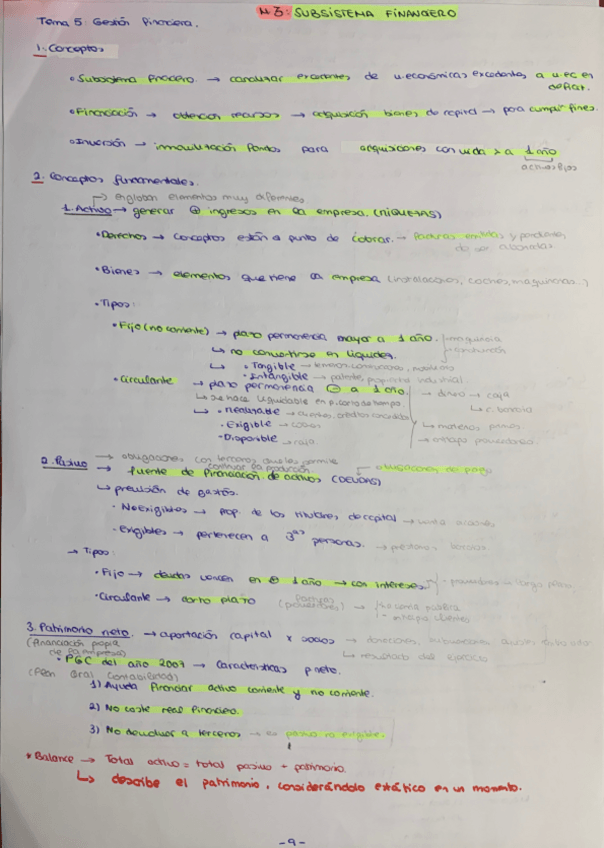 N.3: SUBSISTEMA FINANCIERO
Tema 5: Gestión financiera.
1. Conceptos
• Subsistema financiero. → canalizar excedentes de u.económicas excedentes, a u.ec en
deficit.
• Financiación → obtención recursos → adquisición bienes de capital → para cumplir fines.
• Inversión → inmovilización fondos para adquisiciones con vida > a 1 año
activos fijos
2. Conceptos fundamentales.
→ engloban elementos muy diferentes
1. Activo → generar ⊕ ingresos en la empresa. (RIQUEZAS)
• Derechos → conceptos están a punto de cobrar. → facturas emitidas y pendientes
de ser abonadas.
• Bienes → elementos que tiene la empresa (instalaciones, coches, maquinas...)
• Tipos:
• Fijo (no corriente) → plazo permanencia mayor a 1 año. maquinaria
construcción
↳ no convertirse en liquidez.
↳ • Tangible → terrenos, construcciones, mobiliario
• Intangible → patente, propiedad industrial
• Circulante → plazo permanencia ⊖ a 1 año. → dinero → caja
↳ se hace liquidable en p. corto de tiempo. ↳ c. bancaria
↳ • Realizable → clientes, créditos concedidos → materias primas
• Exigible →
• Disponible → caja. → anticipo proveedores
2. Pasivo → obligaciones con terceros que les permite
continuar la producción
→ fuente de financiación de activos (DEUDAS) → obligaciones de pago
↳ previsión de gastos.
• No exigibles → prop. de los titulares de capital →
• Exigibles → pertenecen a 3ªˢ personas. → préstamo bancos.
→ Tipos:
• Fijo → deudas vencen en ⊕ 1 año → con intereses. → proveedores → largo plazo
• Circulante → corto plazo (facturas proveedores) →
→ anticipo clientes
3. Patrimonio neto. → aportación capital x socios → donaciones, subvenciones,
(financiación propia
de la empresa) ↳ resultado del ejercicio
• PGC del año 2007 → características p neto.
(Plan Gral Contabilidad)
1) Ayuda financiar activo corriente y no corriente.
2) No coste real financiero.
3) No devolver a terceros → es pasivo no exigible.
* Balance → Total activo = total pasivo + patrimonio.
↳ describe el patrimonio, considerándolo estático en un momento.
-9-